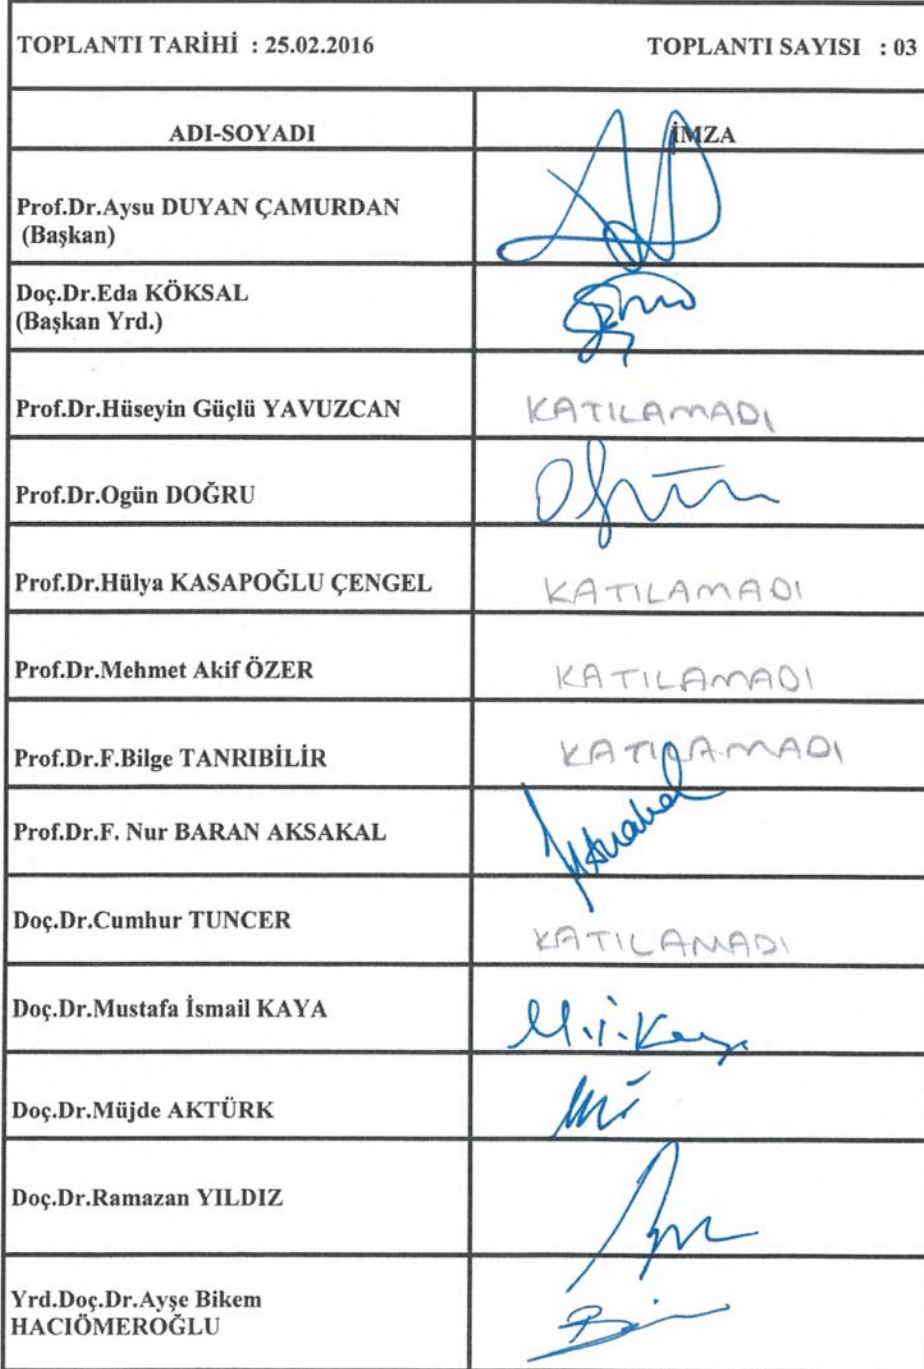 TOPLANTI TARİHİ : 25.02.2016 TOPLANTI SAYISI : 03
ADI-SOYADI İMZA
Prof.Dr.Aysu DUYAN ÇAMURDAN
(Başkan)
Doç.Dr.Eda KÖKSAL
(Başkan Yrd.)
Prof.Dr.Hüseyin Güçlü YAVUZCAN KATILAMADI
Prof.Dr.Ogün DOĞRU
Prof.Dr.Hülya KASAPOĞLU ÇENGEL KATILAMADI
Prof.Dr.Mehmet Akif ÖZER KATILAMADI
Prof.Dr.F.Bilge TANRIBİLİR KATILAMADI
Prof.Dr.F. Nur BARAN AKSAKAL
Doç.Dr.Cumhur TUNCER KATILAMADI
Doç.Dr.Mustafa İsmail KAYA M.i.Kaya
Doç.Dr.Müjde AKTÜRK
Doç.Dr.Ramazan YILDIZ
Yrd.Doç.Dr.Ayşe Bikem
HACIÖMEROĞLU